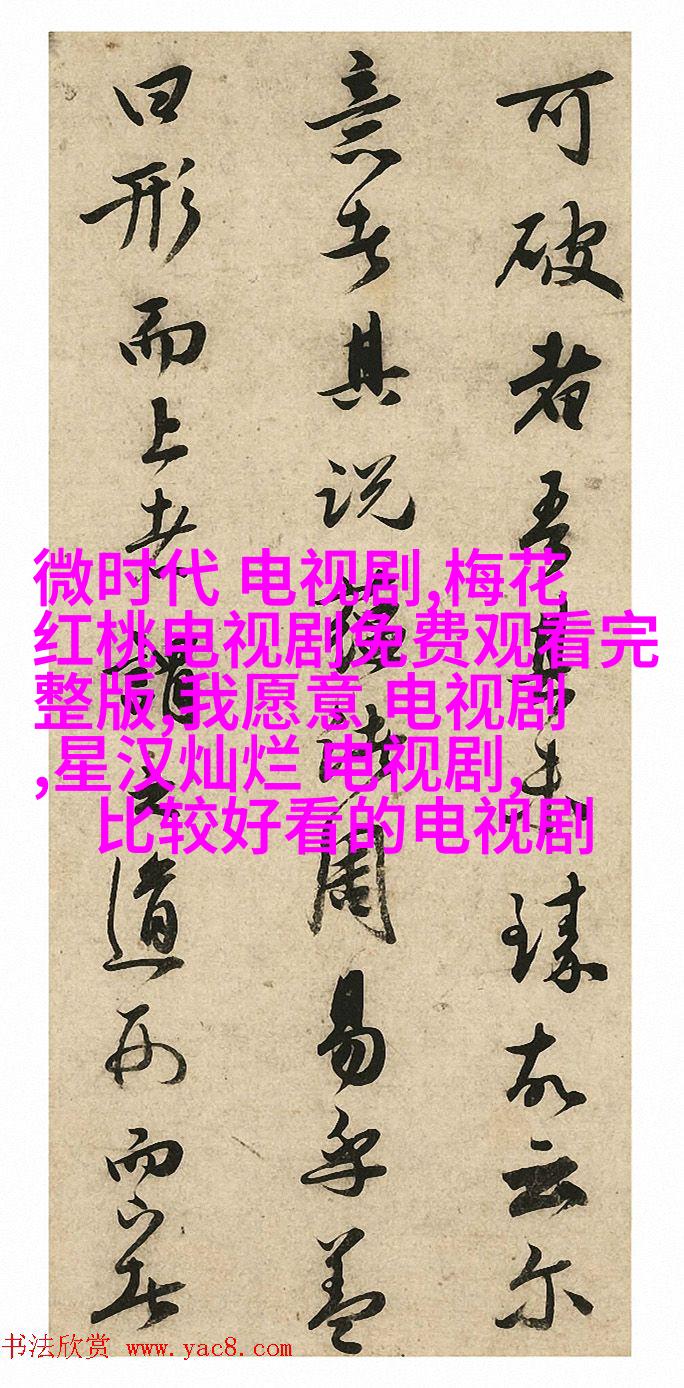 可破者吾書未臻故云尔
意者其说
周易乎盖
曰形而上者谓之道形而下者
微时代 电视剧,梅花
红桃电视剧免费观看完
整版,我愿意 电视剧
,星汉灿烂 电视剧,
比较好看的电视剧
书法欣赏 www.yac8.com